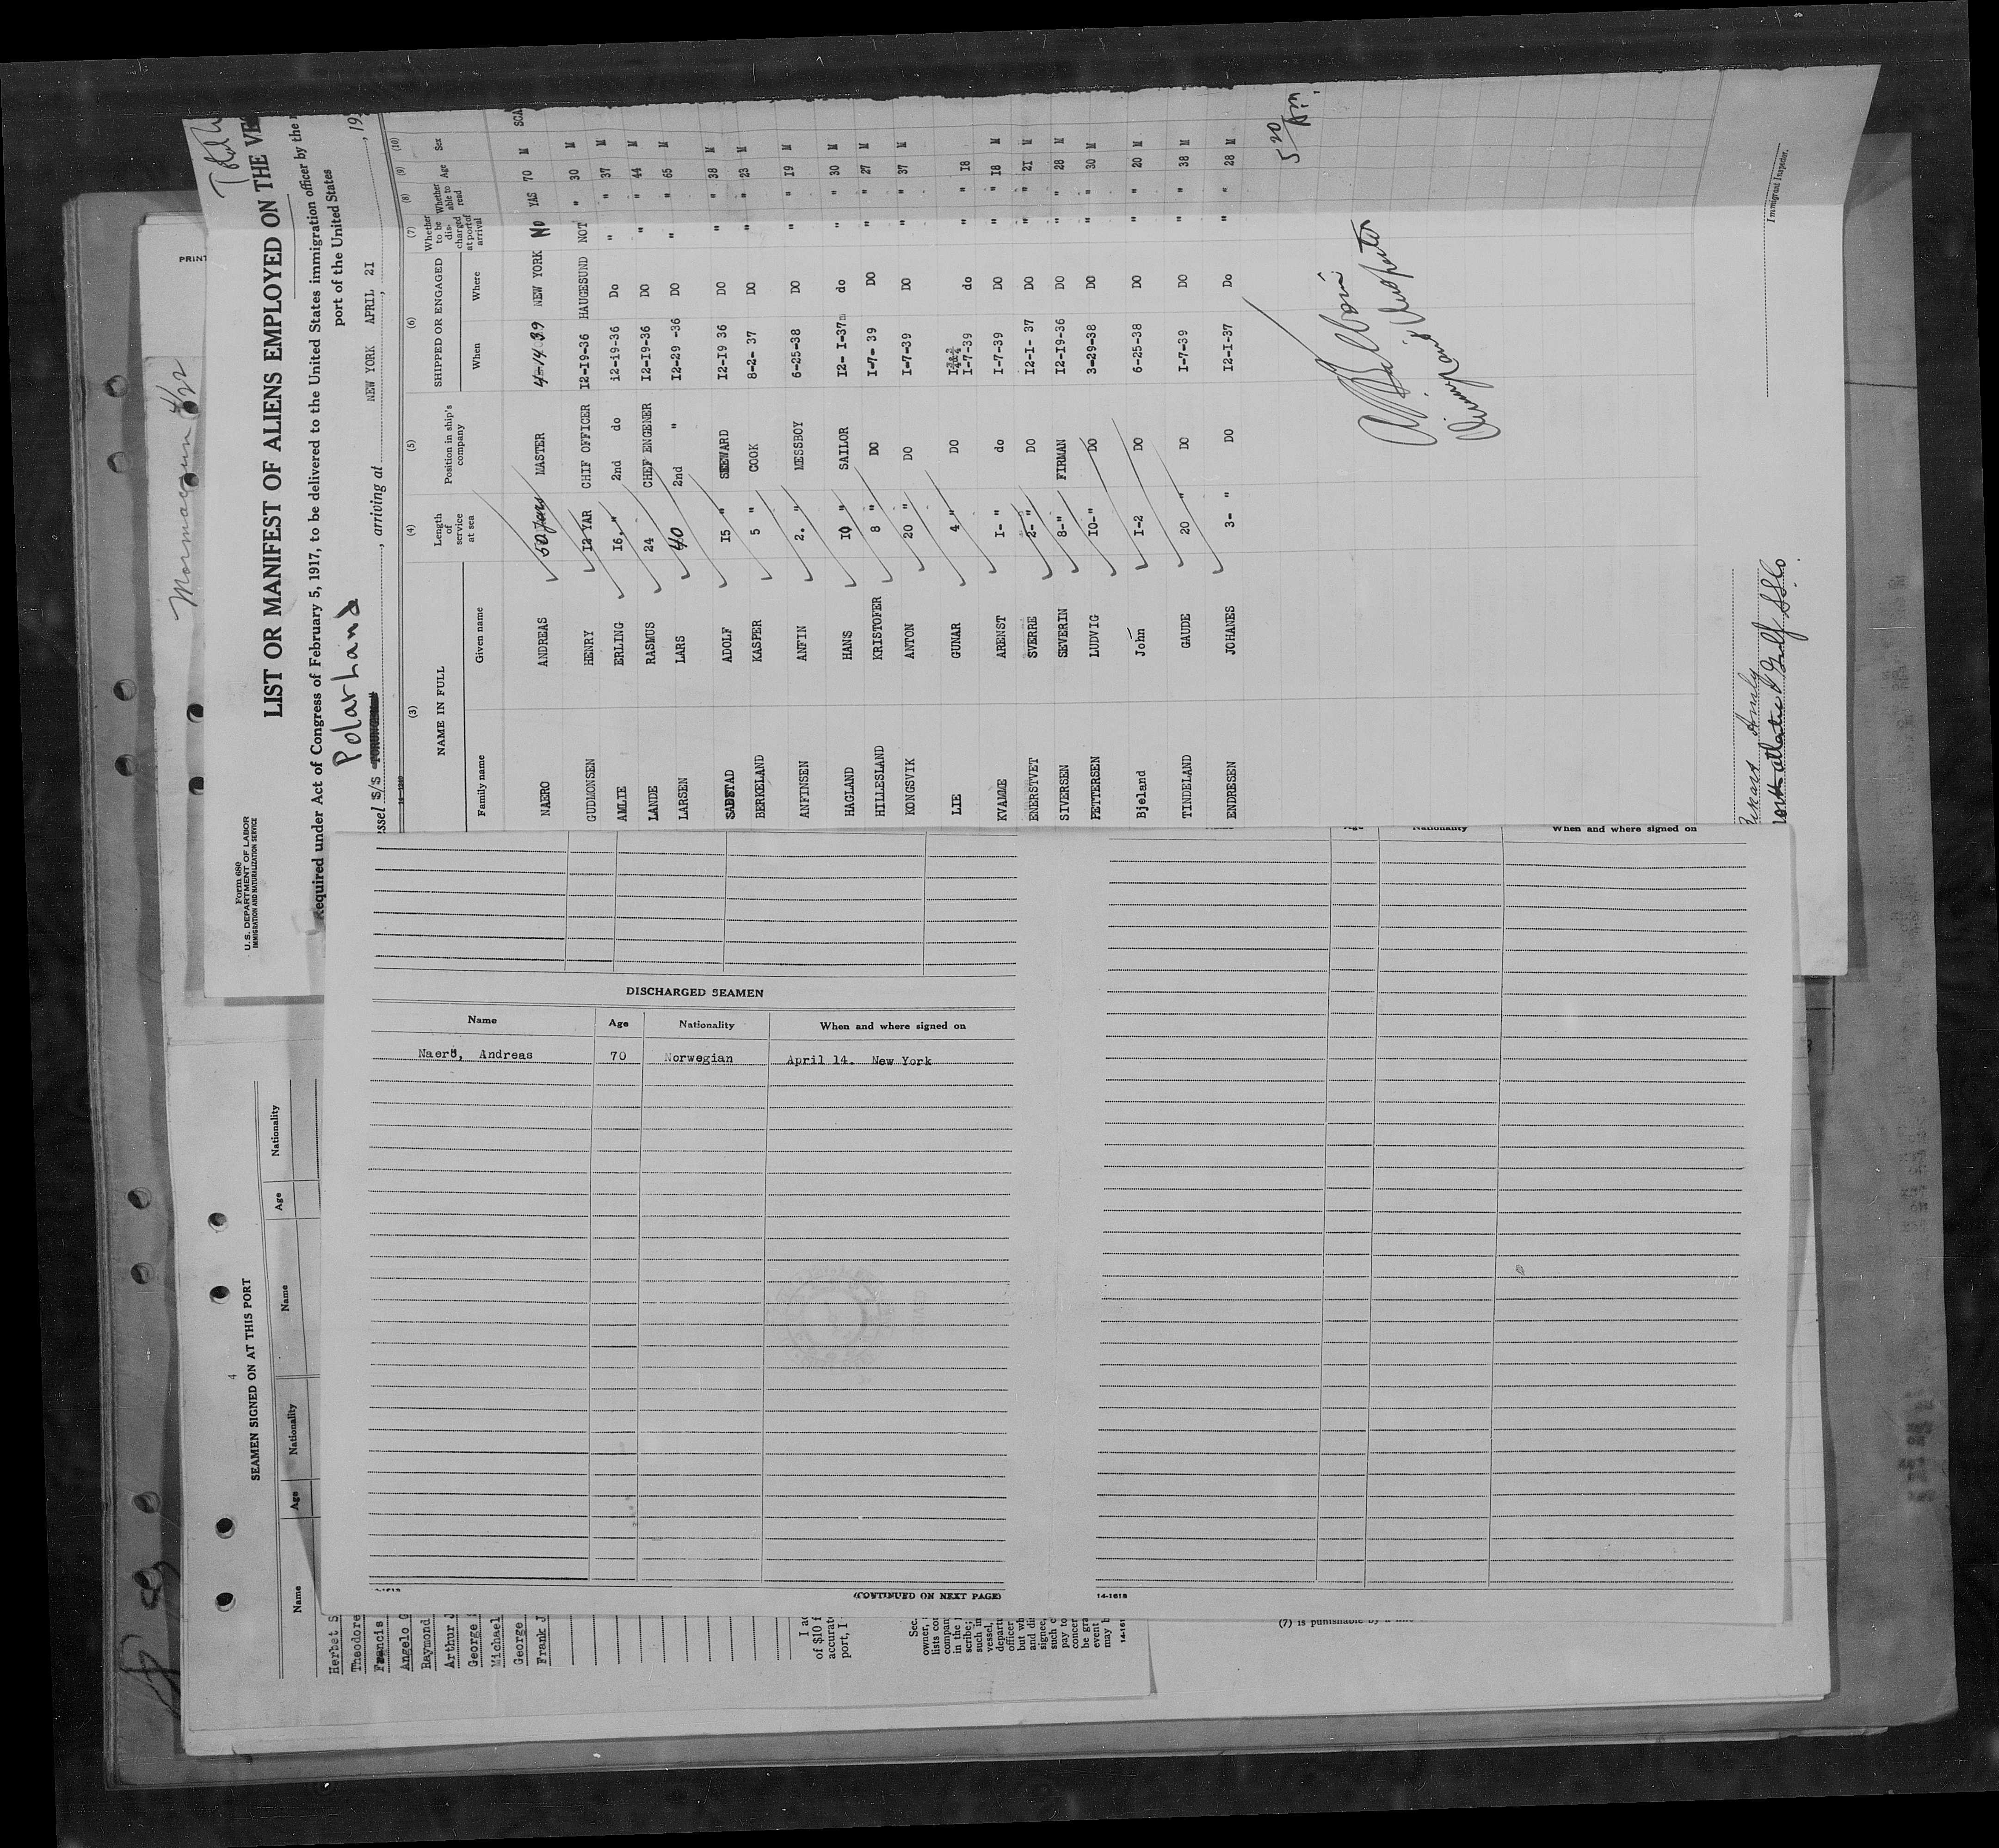 Form 680
U. S. DEPARTMENT OF LABOR
IMMIGRATION AND NATURALIZATION SERVICE
LIST OR MANIFEST OF ALIENS EMPLOYED ON THE VE
Required under Act of Congress of February 5, 1917, to be delivered to the United States immigration officer by the
port of the United States
PolarLand
ssel S/S , arriving at NEW YORK APRIL 21 , 19
(3) (4) (5) (6) (7) (8) (9) (10)
NAME IN FULL Length of service at sea Position in ship's company SHIPPED OR ENGAGED Whether to be discharged at port of arrival Whether able to read Age Sex
Family name Given name When Where
NAERO ANDREAS 50 years MASTER 4-14-39 NEW YORK No YAS 70 M SCA
GUDMONSEN HENRY 12 YAR CHIF OFFICER I2-I9-36 HAUGESUND NOT " 30 M
AMLIE ERLING I6. " 2nd do i2-i9-36 Do " " 37 M
LANDE RASMUS 24 CHEF ENGENER I2-I9-36 DO " " 44 M
LARSEN LARS 40 2nd " I2-29 -36 DO " " 65 M
SADSTAD ADOLF I5 " SEEWARD I2-I9 36 DO " " 38 M
BERKELAND KASPER 5 " COOK 8-2- 37 DO " " 23 M
ANFINSEN ANFIN 2. " MESSBOY 6-25-38 DO " " I9 M
HAGLAND HANS I0 " SAILOR I2- I-37m do " " 30 M
HILLESLAND KRISTOFER 8 " DO I-7- 39 DO " " 27 M
KONGSVIK ANTON 20 " DO I-7-39 DO " " 37 M
LIE GUNAR 4 " DO I-7-39 do " " I8
KVAMME ARENST I- " do I-7-39 DO " " I8 M
ENERSTVET SVERRE 2- " DO I2-I- 37 DO " " 2I M
SIVERSEN SEVERIN 8-" FIRMAN I2-I9-36 DO " " 28 M
PETTERSEN LUDVIG I0-" DO 3-29-38 DO " " 30 M
Bjeland John I-2 DO 6-25-38 DO " " 20 M
TINDELAND GAUDE 20 " DO I-7-39 DO " " 38 M
ENDRESEN JOHANES 3- " DO I2-I-37 Do " " 28 M
5 20 Am
Immigrant Inspector.
PRINT
Mormacsun 4/22
DISCHARGED SEAMEN
Name Age Nationality When and where signed on
Naerö, Andreas 70 Norwegian April 14. New York
(CONTINUED ON NEXT PAGE)
Age Nationality When and where signed on
14-1618
4
SEAMEN SIGNED ON AT THIS PORT
Name Age Nationality Name Age Nationality
Herbet S
Theodore
Francis
Angelo G
Raymond
Arthur J
George
Michael
George
Frank J
I ac
of $10 f
accurat
port, I
Sec.
owner,
lists con
compan
in the
scribe;
such in
vessel,
departu
officer
but wh
and dis
signee,
such c
pay to
concer
be gra
event
may b
14-161
(7) is punishable by a